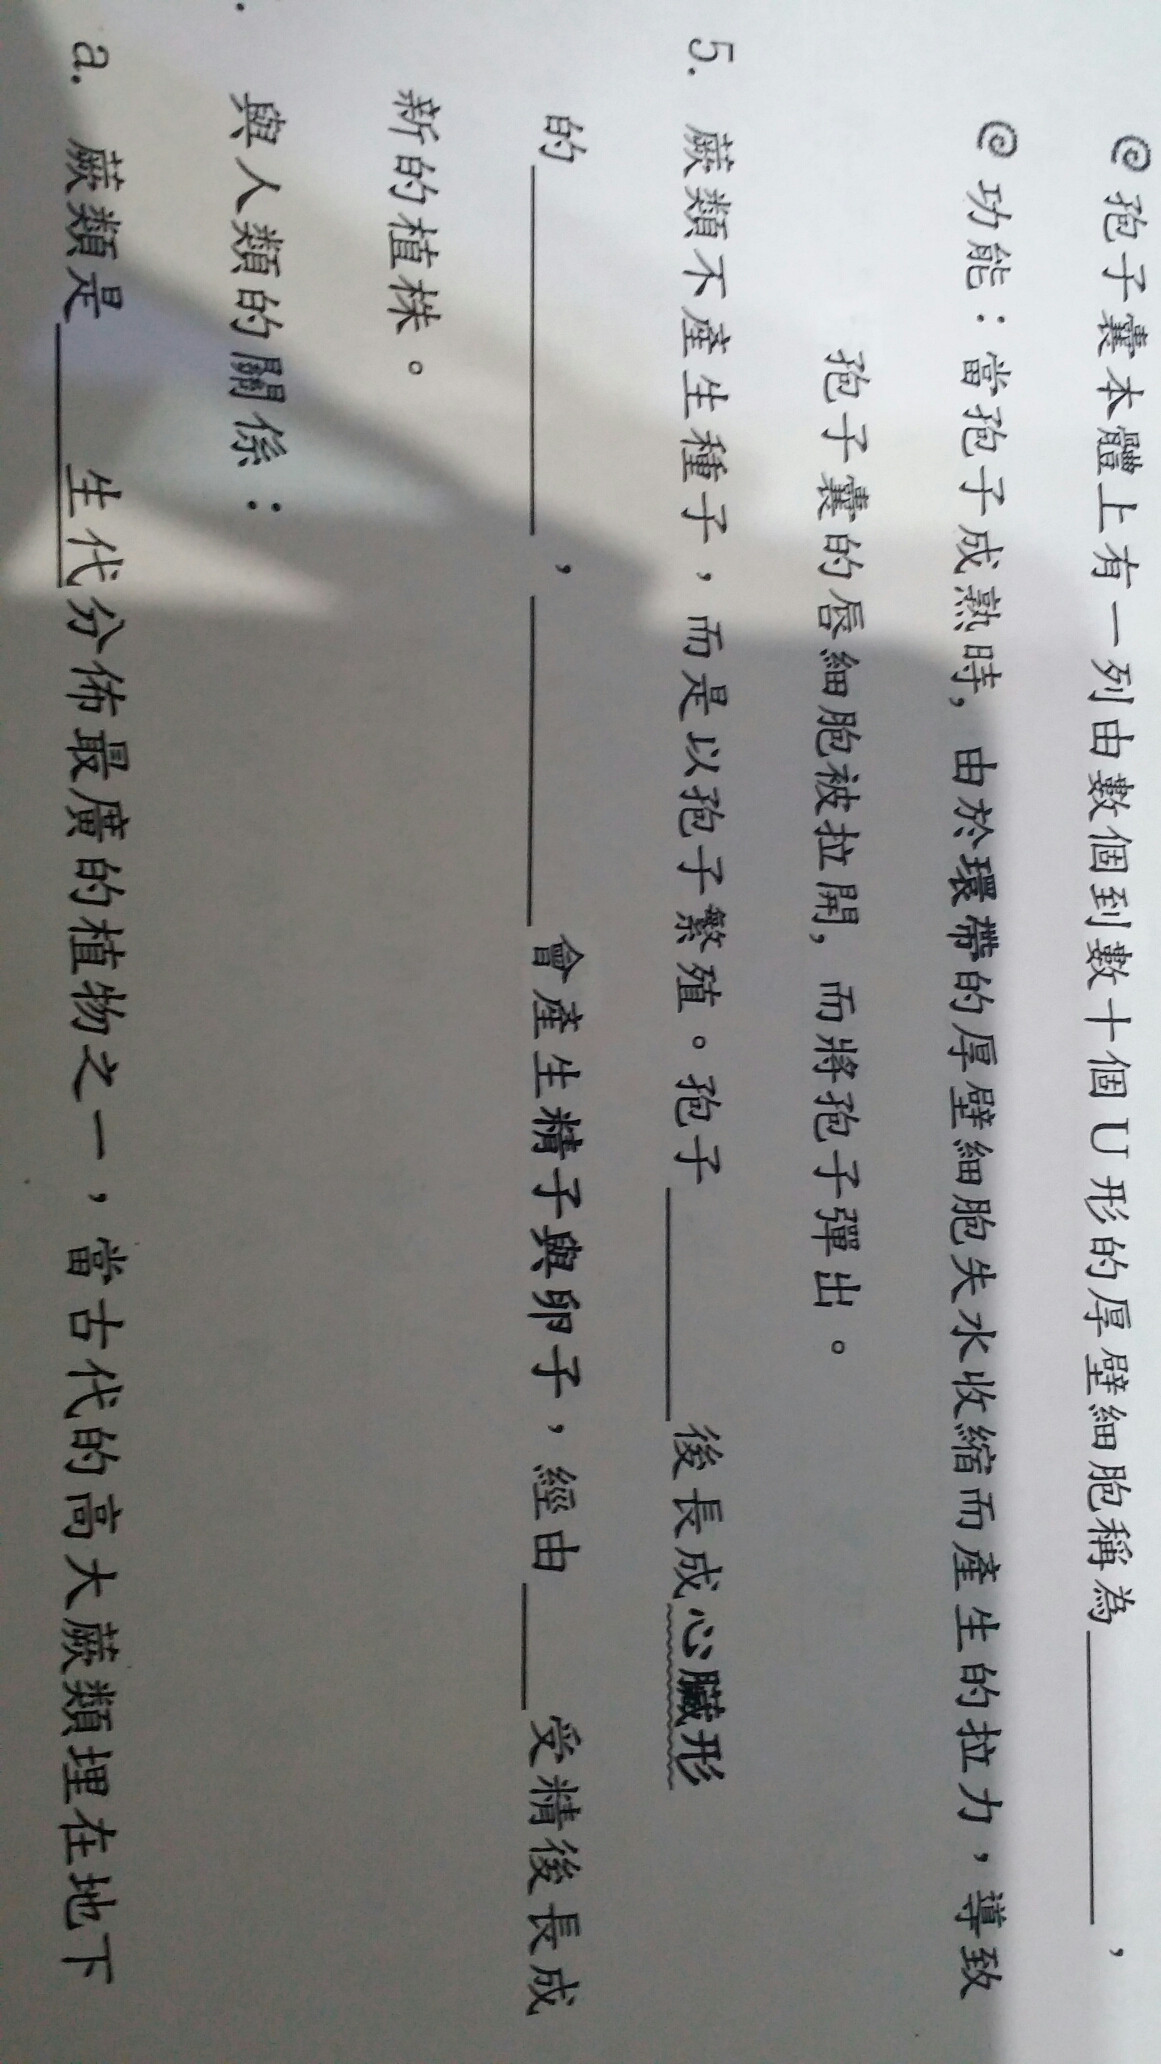 @ 孢子囊本體上有一列由數個到數十個 U 形的厚壁細胞稱為__________，
@ 功能：當孢子成熟時, 由於環帶的厚壁細胞失水收縮而產生的拉力，導致
孢子囊的唇細胞被拉開, 而將孢子彈出。
5. 蕨類不產生種子，而是以孢子繁殖。孢子________後長成心臟形
的____________，__________會產生精子與卵子，經由____受精後長成
新的植株。
與人類的關係：
a. 蕨類是____生代分佈最廣的植物之一，當古代的高大蕨類埋在地下